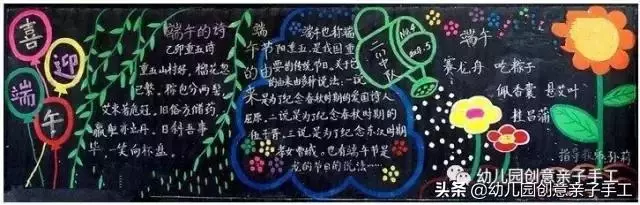 喜迎端午
端午的诗
己卯重五诗
重五山村好，榴花忽
已繁。粽包分两髻，
艾束著危冠。旧俗方储药，
羸躯亦点丹。日斜吾事
毕，一笑向杯盘。
端午节的由来
端午也称端
阳重五，是我国重
要的传统节日。关于它
的由来由多种说法：一说
是为了纪念春秋时期的爱国诗人
屈原，二说是为了纪念春秋时期的
伍子胥，三说，是为了纪念东汉时期
孝女曹娥，也有端午节是
龙的节日的说法……
二(1)中队
No.4
端午
赛龙舟 吃粽子
佩香囊 悬艾叶
挂菖蒲
指导教师：孙莉
幼儿园创意亲子手工
头条 @幼儿园创意亲子手工